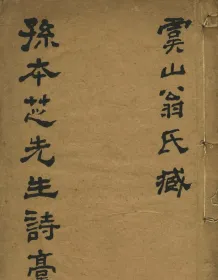 虞山翁氏藏
孫本芝先生詩稾